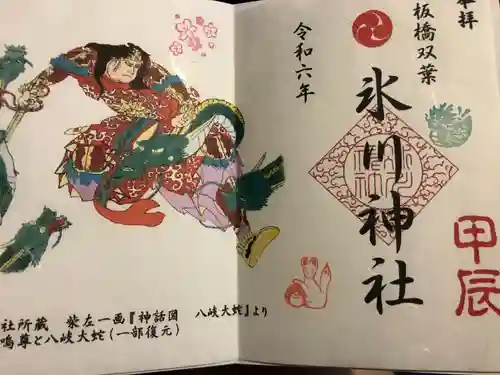 奉拝
板橋双葉
氷川神社
甲辰
令和六年
社所蔵　紫左一画『神話図　八岐大蛇』より
嗚尊と八岐大蛇(一部復元)